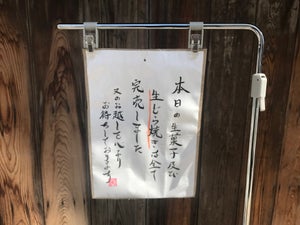 本日の生菓子及び
生どら焼きは全て
完売しました
又のお越しを心より
お待ちしております